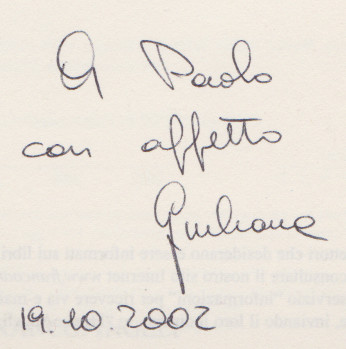 A Paolo
con affetto
Giuliana
19.10.2002